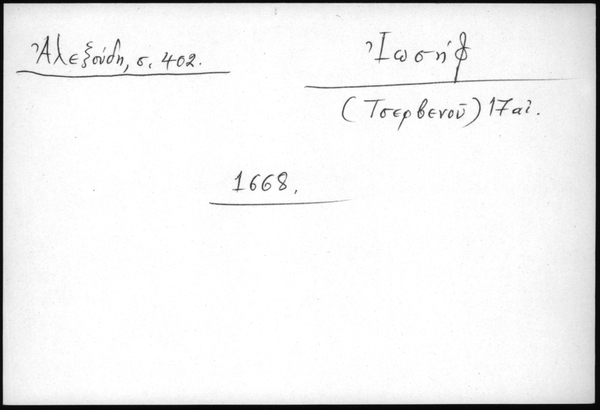 Ἀλεξούδη, σ. 402.
Ἰωσήφ
(Τσερβενοῦ) 17 αἰ.
1668.